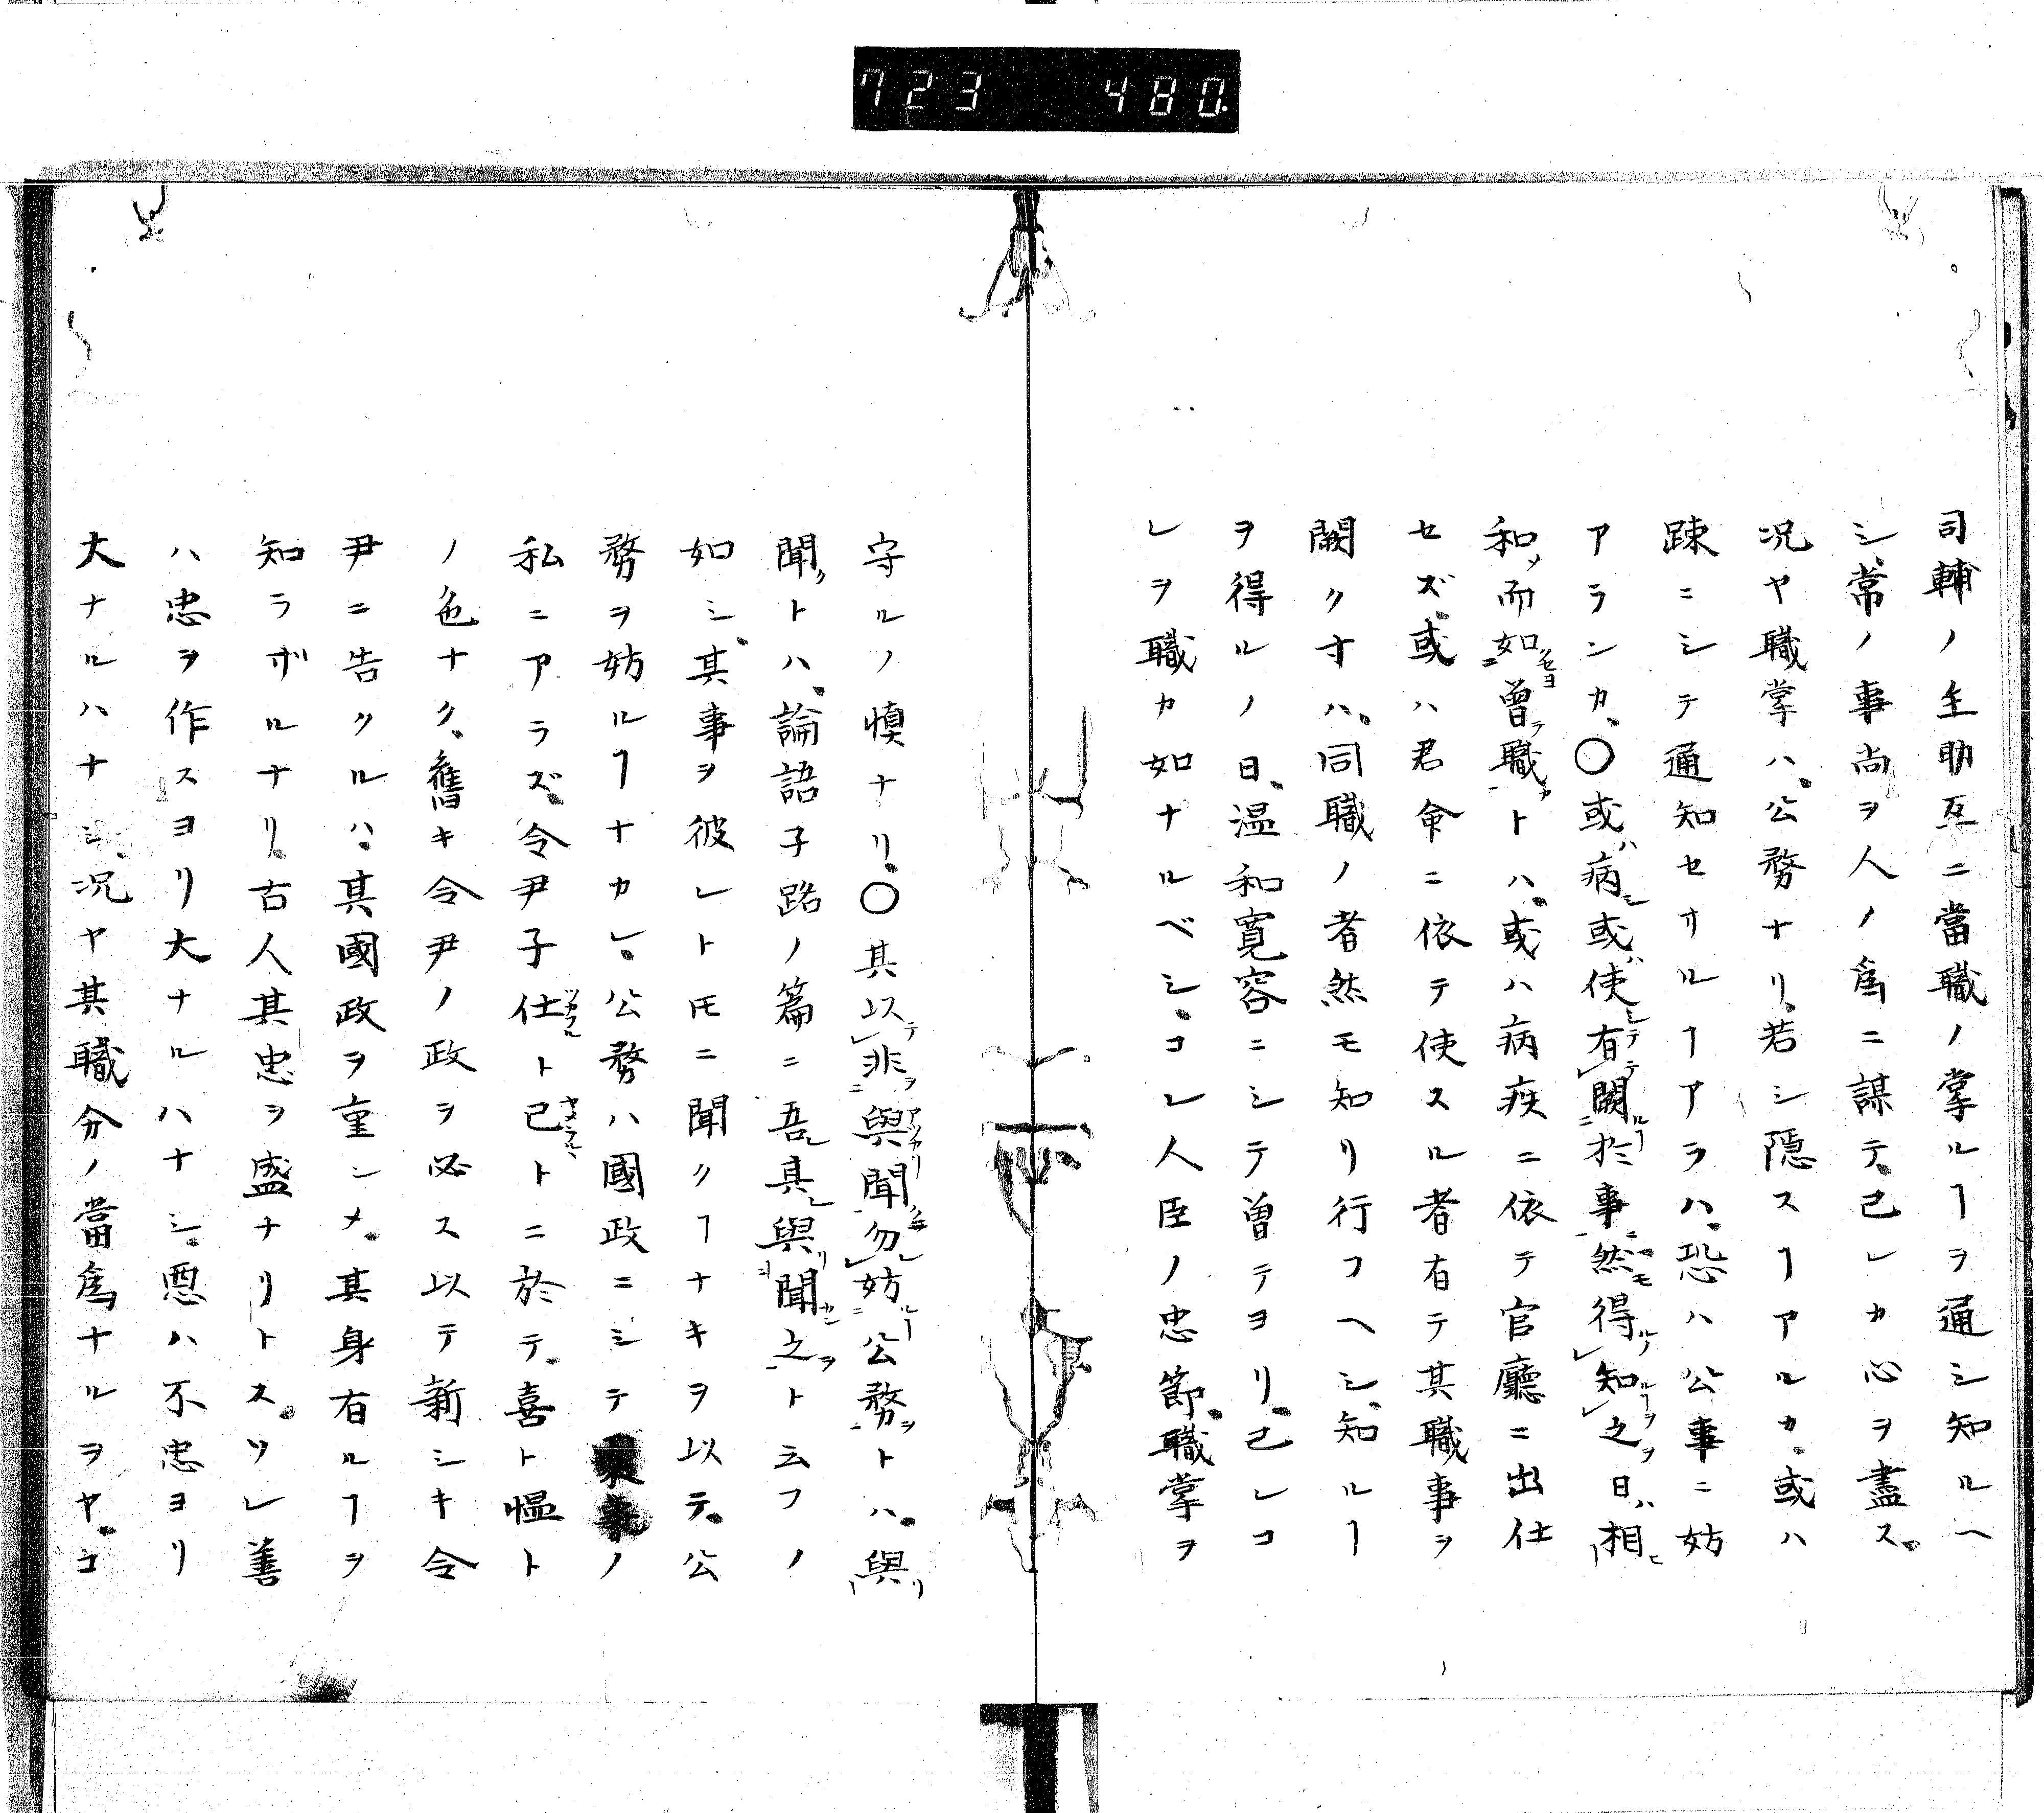 723 480.
司輔ノ主助互ニ當職ノ掌ルヿヲ通シ知ルヘ
シ、常ノ事尚ヲ人ノ爲ニ謀テ、己レカ心ヲ盡ス。
況ヤ職掌ハ、公務ナリ、若シ隱スヿアルカ、或ハ
踈ニシテ通知セサルヿアラハ、恐ハ公事ニ妨
アランカ、〇或ハ病シ或ハ使シテ有テ闕ルヿ於事ニ然モ得ルノ知ルヿヲ之ヲ日ハ相ヒ
和メ而如ニセヨ曾テ職カトハ、或ハ病疾ニ依テ官廳ニ出仕
セズ、或ハ君命ニ依テ使スル者有テ其職事ヲ
闕クオハ、同職ノ者然モ知リ行フヘシ、知ルヿ
ヲ得ルノ日、温和寛容ニシテ曽テヨリ、己レコ
レヲ職カ如ナルベシ、コレ人臣ノ忠節、職掌ヲ
守ルノ慎ナリ、〇其以テ非ヲ與アツカリ聞クニ勿レ妨ルヿ公務ヲトハ、與リ
聞クトハ、論語子路ノ篇ニ吾レ其レ與リ聞カン之ヲト云フノ
如シ、其事ヲ彼レトモニ聞クヿナキヲ以テ、公
務ヲ妨ルヿナカレ、公務ハ國政ニシテ家事ノ
私ニアラズ、令尹子仕ツカフルト已ヤメラルヽトニ於テ、喜ト愠ト
ノ色ナク、舊キ令尹ノ政ヲ必ス以テ新シキ令
尹ニ告クルハ、其國政ヲ重ンメ、其身有ルヿヲ
知ラザルナリ、古人其忠ヲ盛ナリトス。ソレ善
ハ忠ヲ作スヨリ大ナルハナシ、悪ハ不忠ヨリ
大ナルハナシ、况ヤ其職分ノ當爲ナルヲヤ、コ